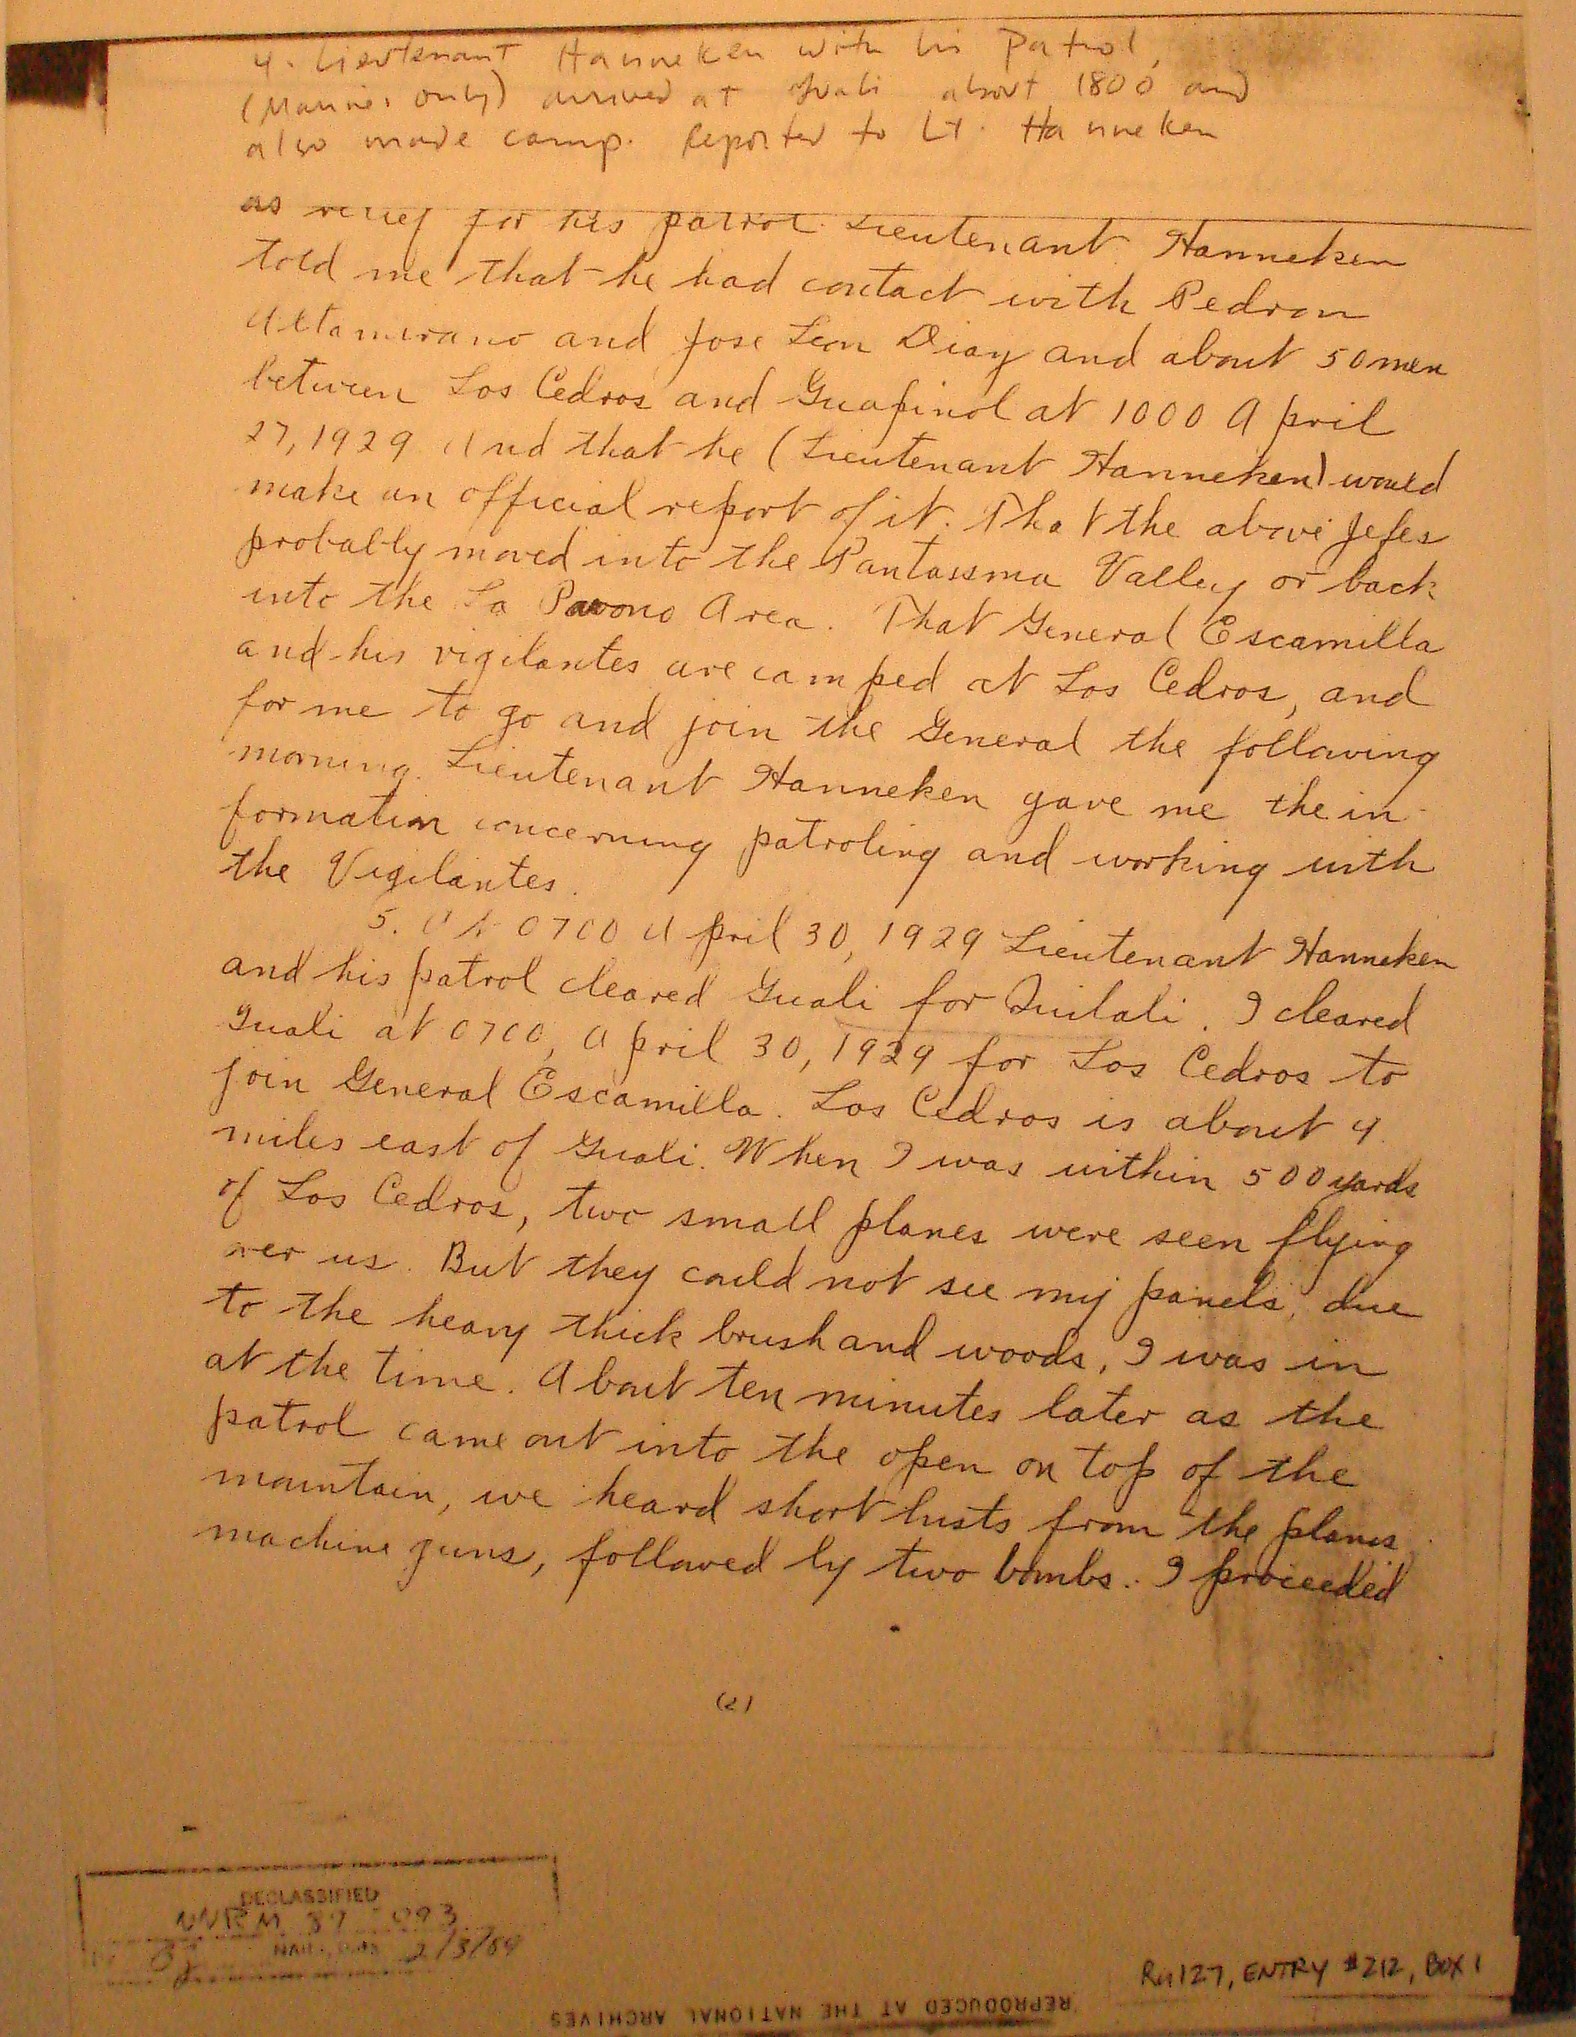 4. Lieutenant Hanneken with his patrol,
(Marines only) arrived at Guali about 1800 and
also made camp. Reported to Lt. Hanneken
as relief for his patrol. Lieutenant Hanneken
told me that he had contact with Pedron
Altamirano and Jose Leon Diaz and about 50 men
between Los Cedros and Guapinol at 1000 April
27, 1929 And that he (Lieutenant Hanneken) would
make an official report of it. That the above Jefes
probably moved into the Pantassma Valley or back
into the La Pavono Area. That General Escamilla
and his vigilantes are camped at Los Cedros, and
for me to go and join the General the following
morning. Lieutenant Hanneken gave me the in-
formation concerning patroling and working with
the Vigilantes.
5. At 0700 April 30, 1929 Lieutenant Hanneken
and his patrol cleared Guali for Quilali. I cleared
Guali at 0700, April 30, 1929 for Los Cedros to
join General Escamilla. Los Cedros is about 4
miles east of Guali. When I was within 500 yards
of Los Cedros, two small planes were seen flying
over us. But they could not see my panels, due
to the heavy thick brush and woods, I was in
at the time. About ten minutes later as the
patrol came out into the open on top of the
mountain, we heard short busts from the planes
machine guns, followed by two bombs. I proceeded
(2)
DECLASSIFIED
NNRM 87 093
2/3/89
RG127, ENTRY #212, BOX 1
REPRODUCED AT THE NATIONAL ARCHIVES